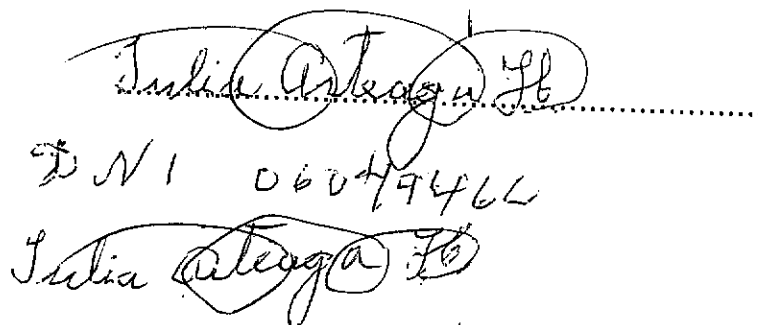 Julia Arteaga H
DNI 0604946
Julia Arteaga H